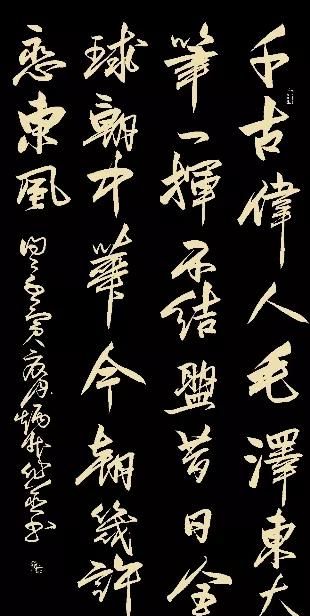 千古偉人毛澤東大
筆一揮不結盟昔日全
球朝中華今朝幾許
恋東風